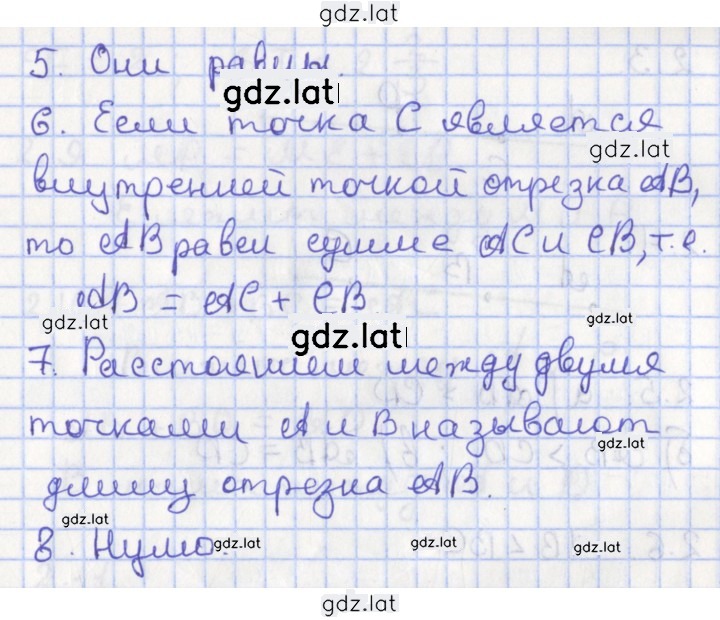 gdz.lat
5. Они равны.
gdz.lat
6. Если точка C является
gdz.lat
внутренней точкой отрезка AB,
то AB равен сумме AC и CB, т.е.
AB = AC + CB
gdz.lat gdz.lat gdz.lat
7. Расстоянием между двумя
точками A и B называют
gdz.lat
длину отрезка AB.
gdz.lat
8. Нулю. gdz.lat gdz.lat gdz.lat
gdz.lat